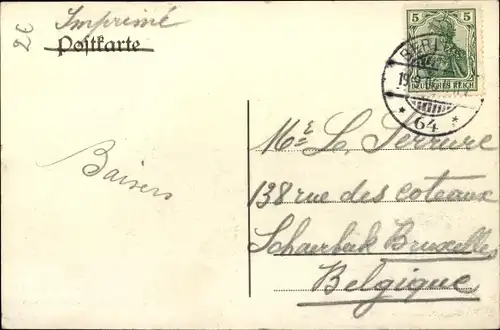 2€
Imprimé
Postkarte
5 5
DEUTSCHES REICH
BERLIN
* 64 *
Baisers
Mr L. Serrure
138 rue des coteaux
Schaerbeek Bruxelles
Belgique